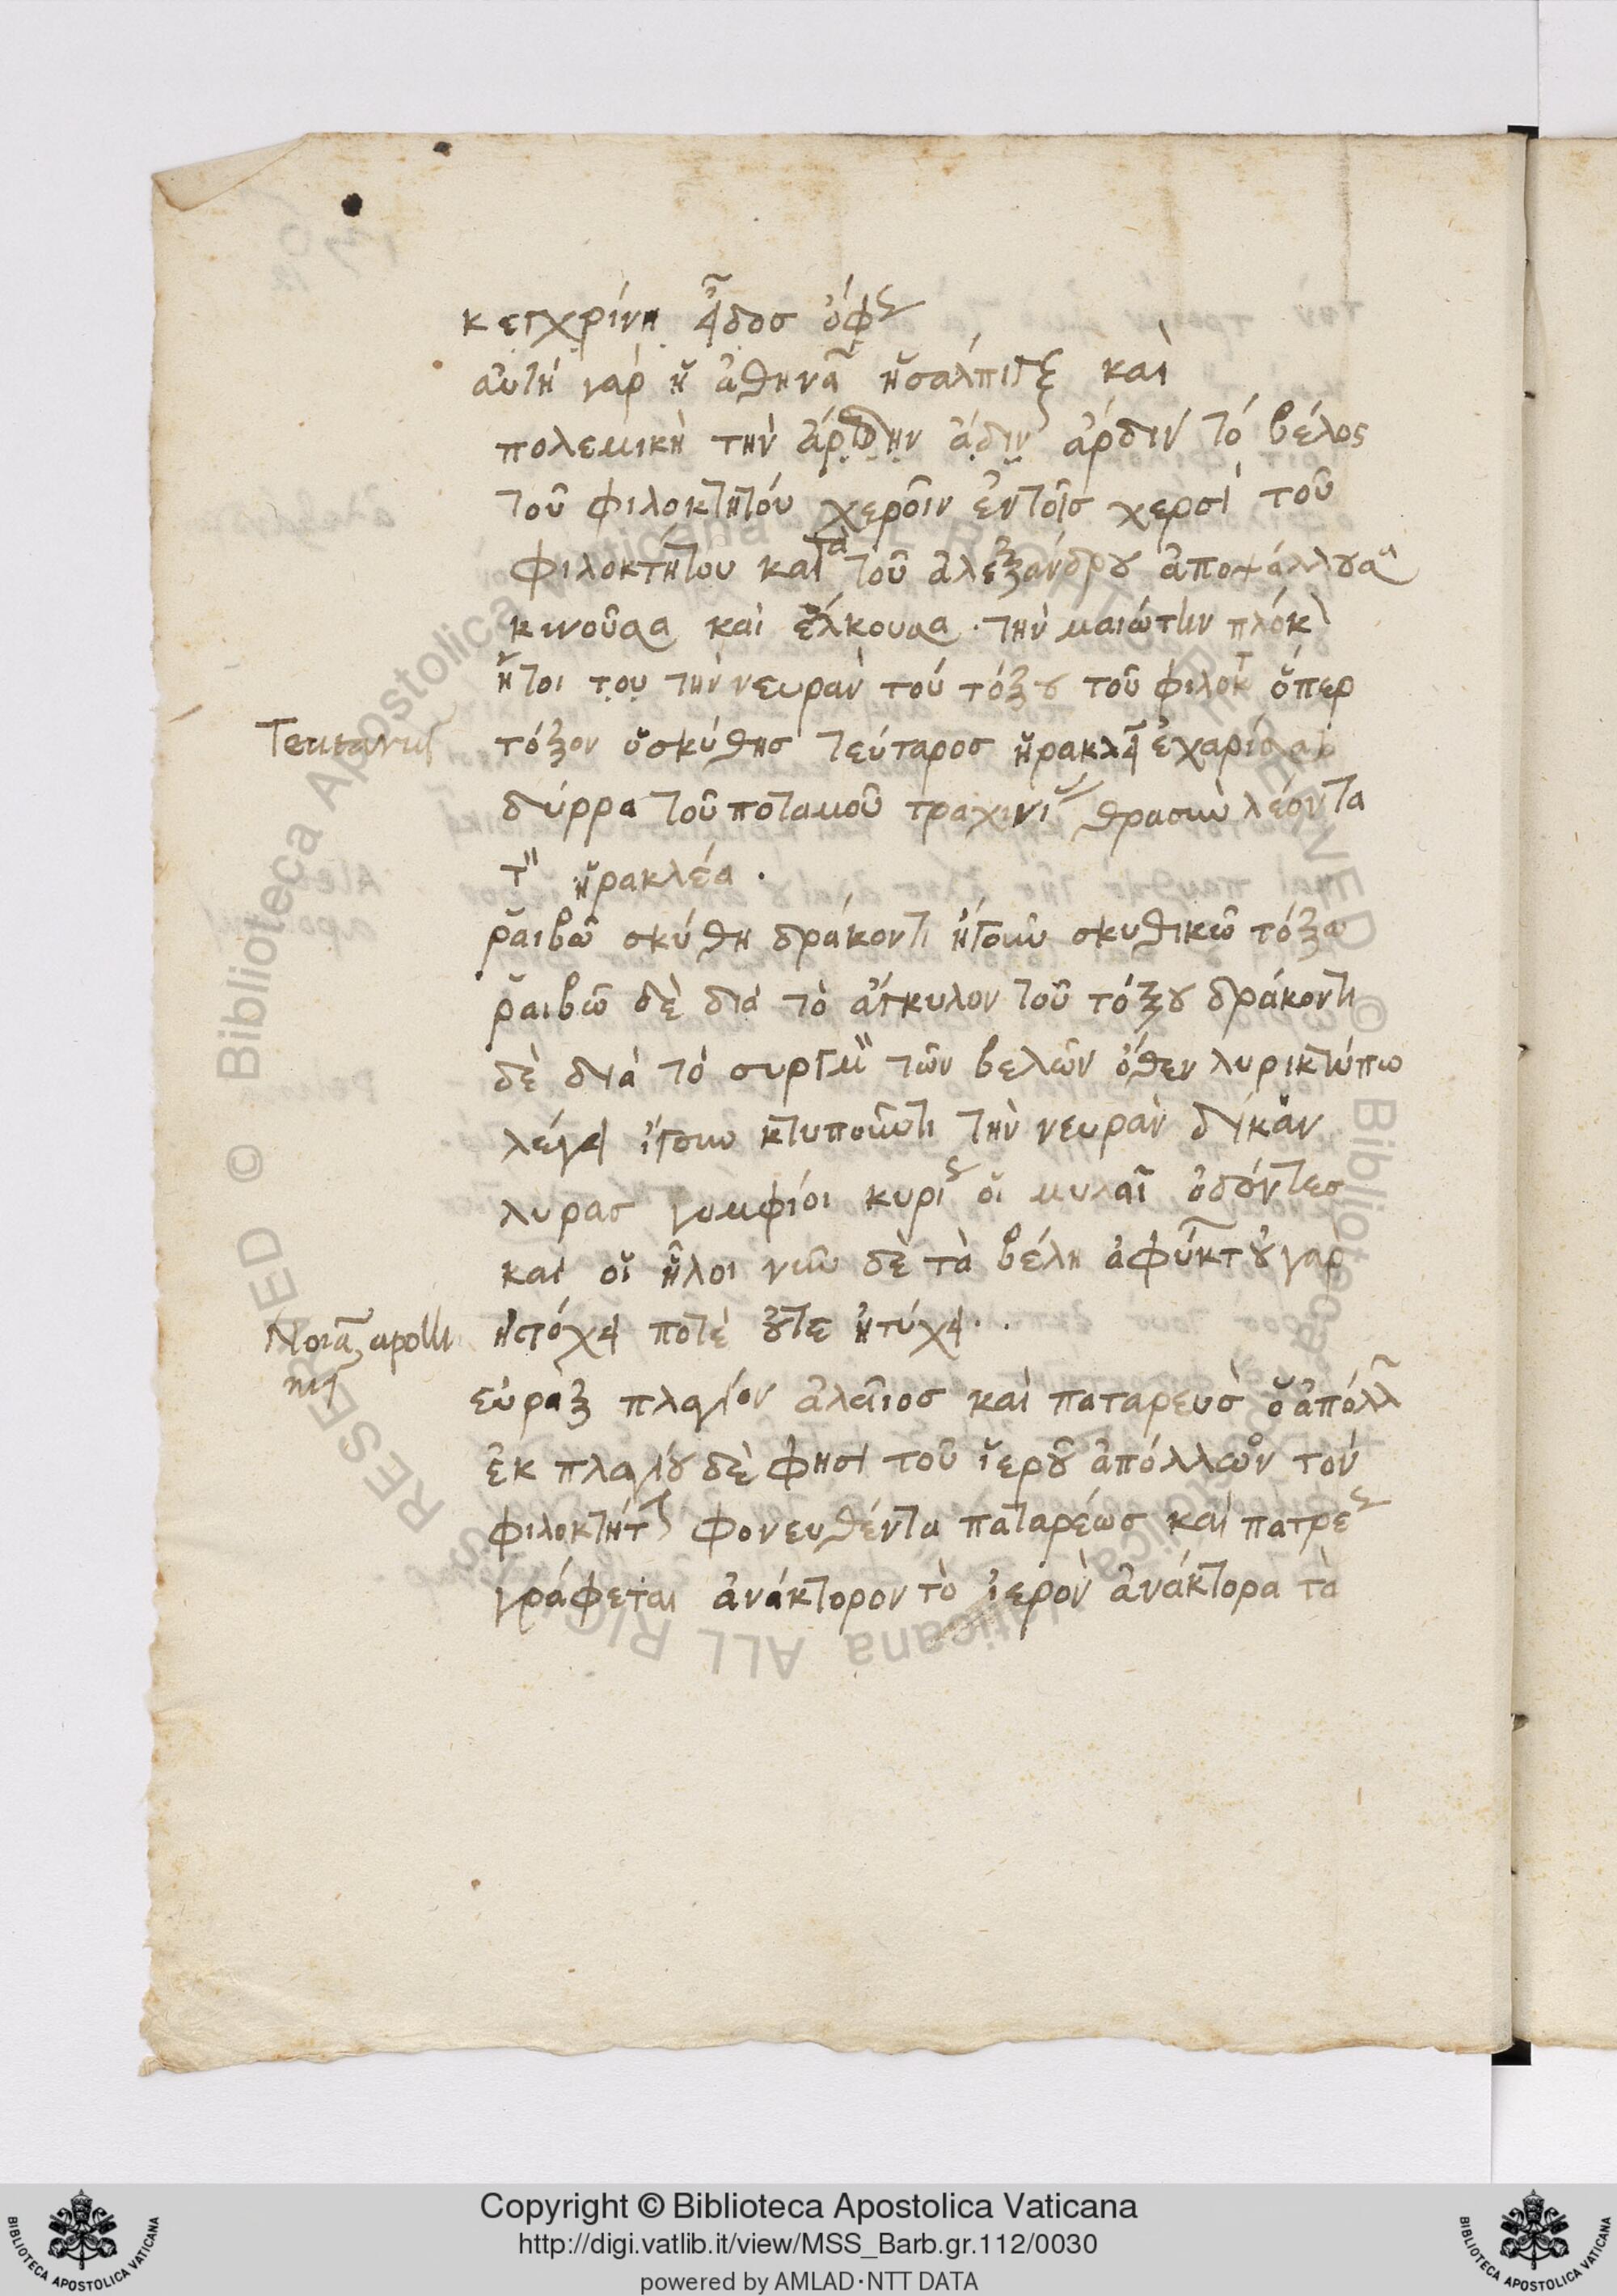 κεγχρίνη εἶδος ὄφς
αὐτὴ γὰρ ἡ ἀθηνᾶ ἡ σάλπιγξ καὶ
πολεμικὴ τὴν ἄρδην ἄδιν ἄρδιν τὸ βέλος
τοῦ φιλοκτητου χεροῖν ἐν τοῖς χερσὶ τοῦ
Φιλοκτήτου κατὰ τοῦ ἀλεξάνδρου ἀποψάλλουσα
κινοῦσα καὶ ἕλκουσα · τὴν μαιώτιν πλόκ
ἤτοι του τὴν νευρὰν τοῦ τόξου τοῦ φιλοκτ ὅπερ
Teutarus
τόξον ὁ σκύθης τεύταρος ἡρακλεῖ ἐχαρίσατο
δύρρα τοῦ ποταμοῦ τραχινι θρασὺν λέοντα
τ ἡρακλέα .
ῥαιβῶ σκύθη δράκοντι ἤγουν σκυθικῶ τόξω
ῥαιβῶ δὲ διὰ τὸ ἀγκυλον τοῦ τόξου δράκοντι
δὲ διὰ τὸ συριγμ τῶν βελῶν ὅθεν λυρικτύπω
λέγει ἤγουν κτυποῦντι τὴν νευρὰν δίκαν
λυρας γομφίοι κυρι οἱ μυλαῖ ὀδόντες
καὶ οἱ ἧλοι νῦν δὲ τὰ βέλη ἀφύκτ οὐ γὰρ
ἠστόχει ποτὲ οὔτε ἠτύχει ..
Nota apolli
nis
εὐρὰξ πλαγίον ἀλαῖος καὶ παταρευς ὁ ἀπόλλ
ἐκ πλαγίου δὲ φησὶ τοῦ ἱεροῦ ἀπόλλων τοῦ
φιλοκτήτ φονευθέντα παταρέως καὶ πατρε
γράφεται ἀνάκτορον τὸ ἱερὸν ἀνάκτορα τὰ
Copyright © Biblioteca Apostolica Vaticana
http://digi.vatlib.it/view/MSS_Barb.gr.112/0030
powered by AMLAD·NTT DATA